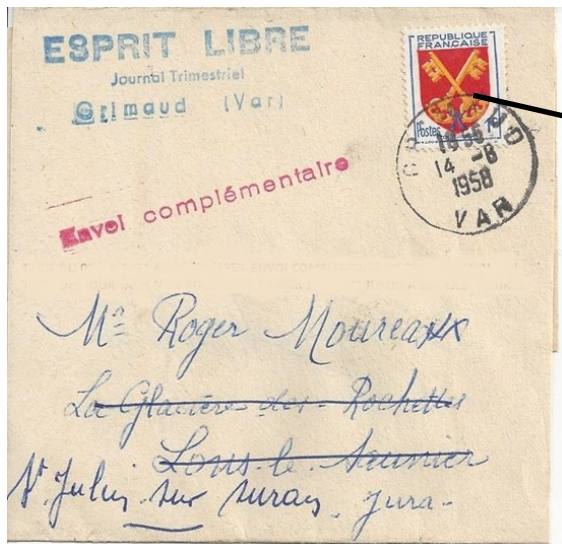 ESPRIT LIBRE
Journal Trimestriel
Grimaud (Var)
REPUBLIQUE
FRANÇAISE
Postes
14 -8
1958
VAR
Envoi complémentaire
Mr Roger Moureaux
La Glacière des Rochettes
Lons-le-Saunier
St Julien sur Suran, Jura-